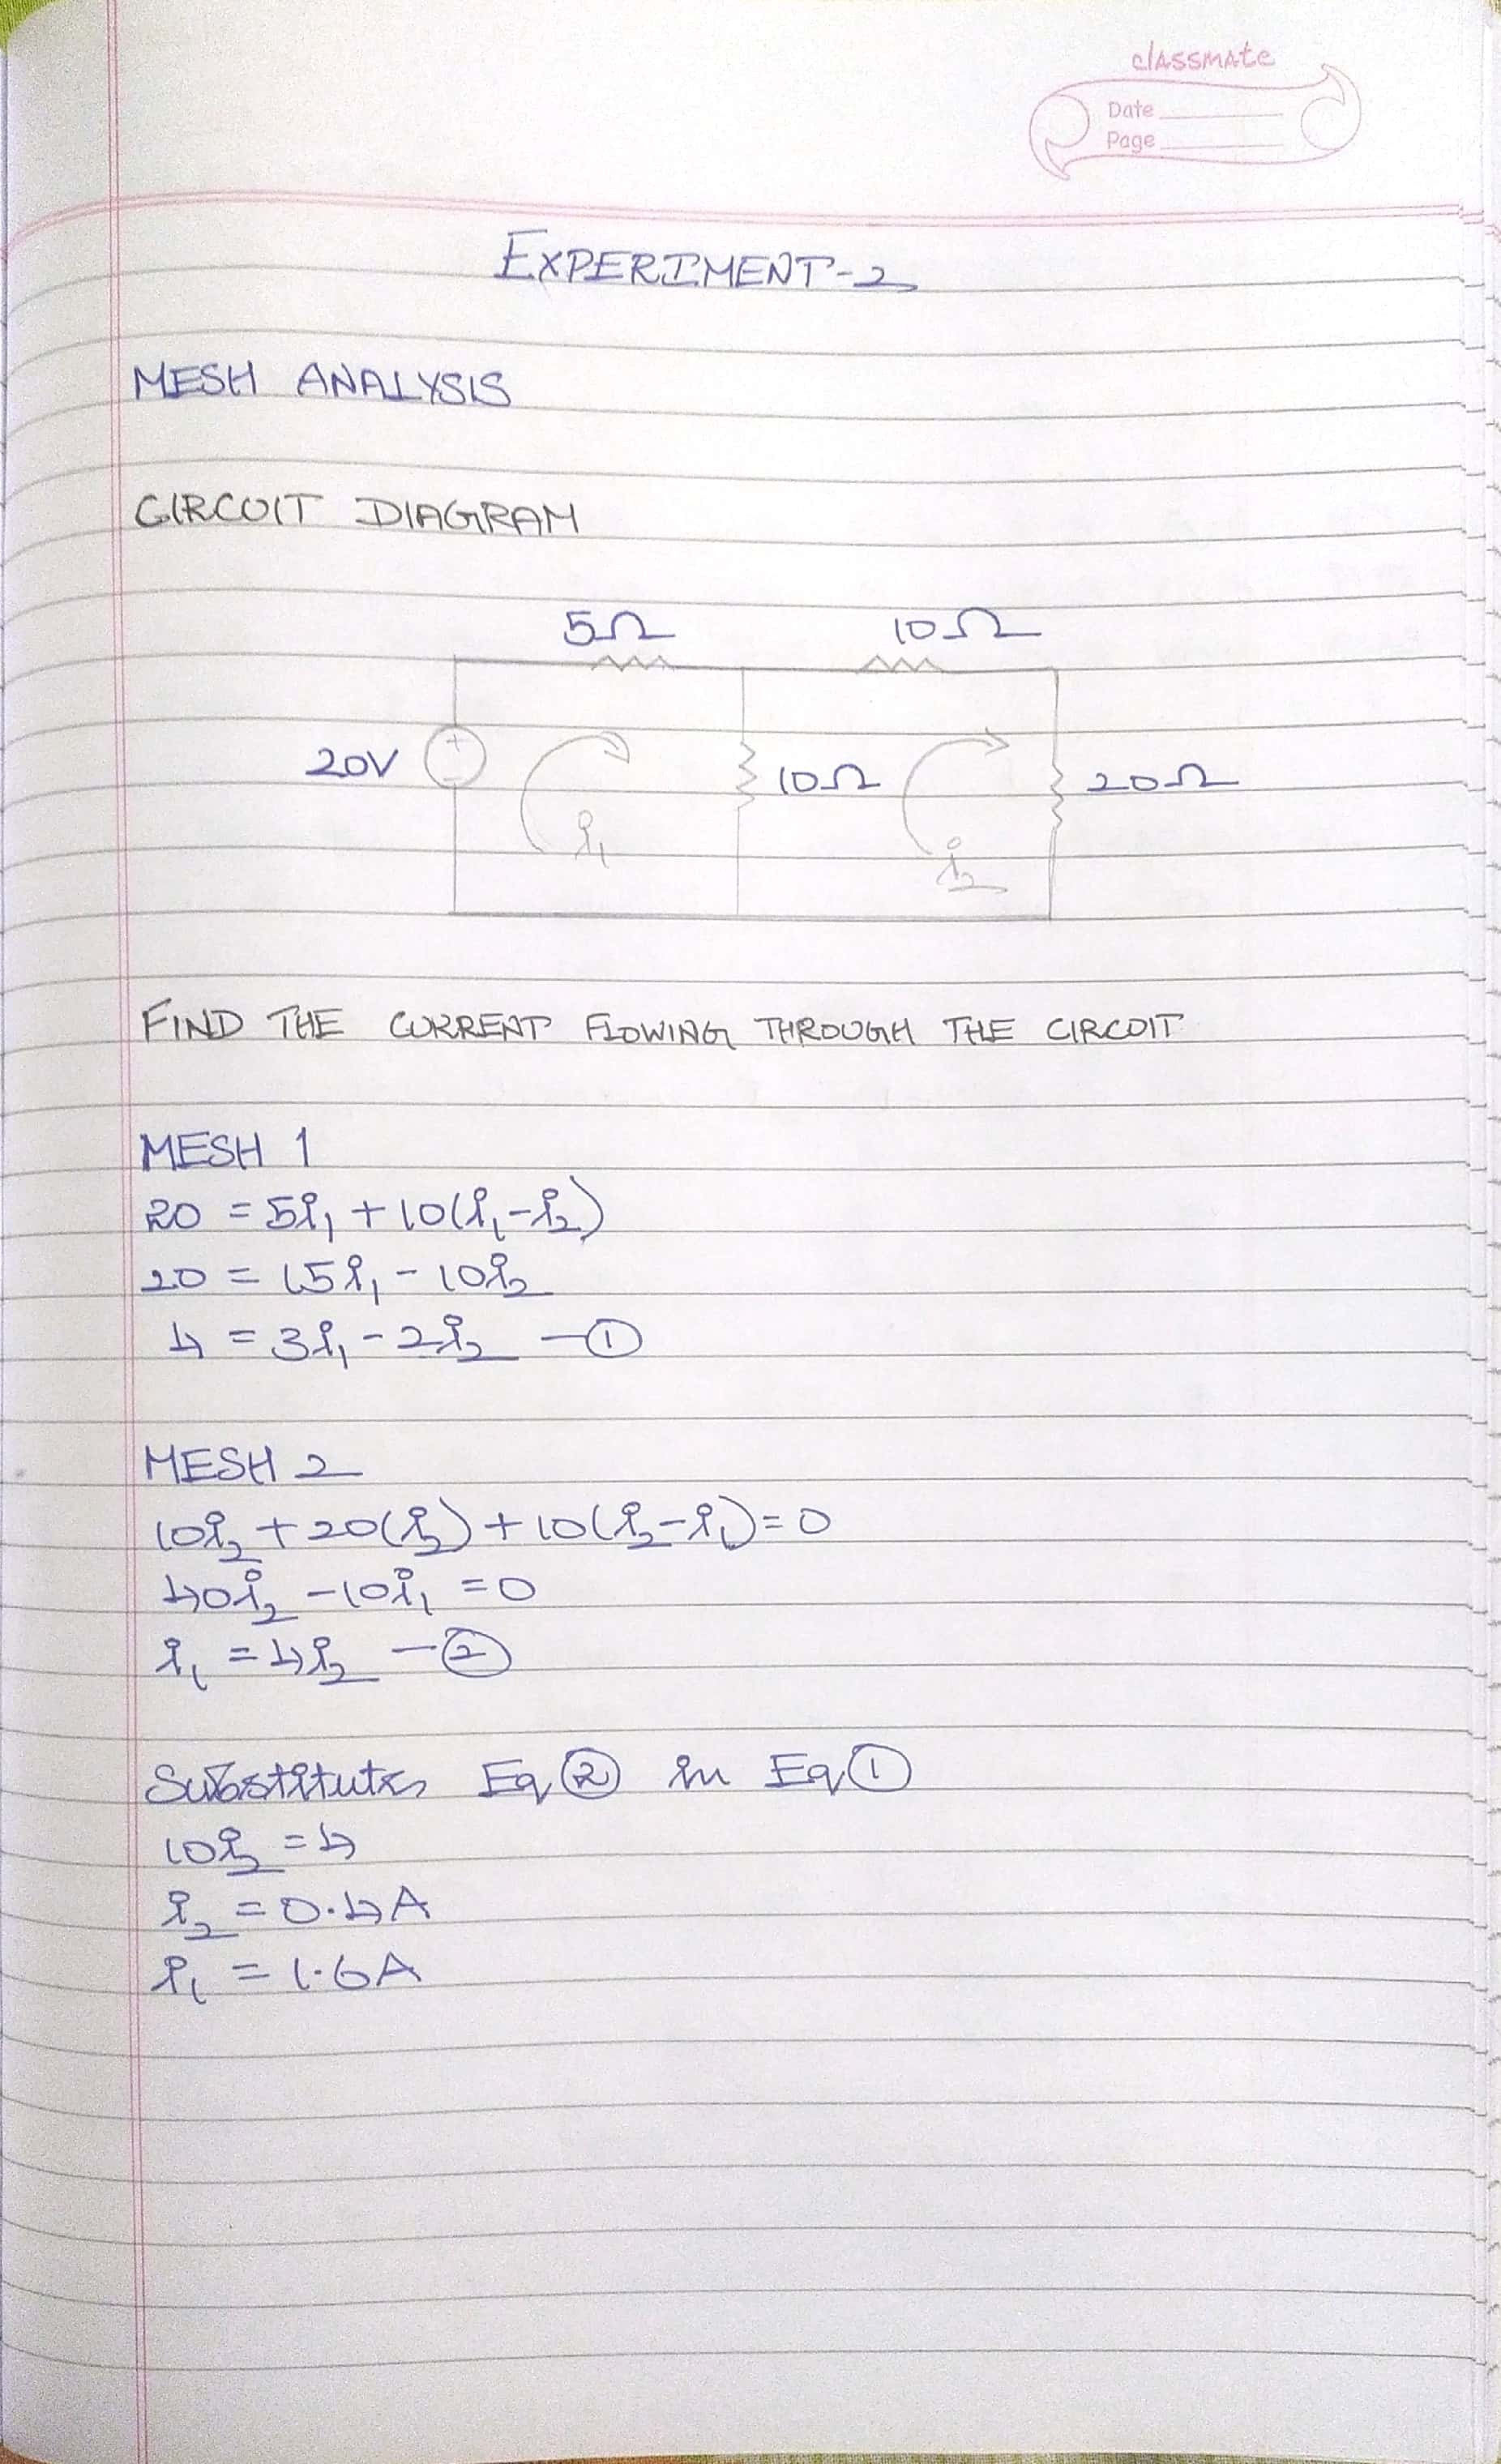 classmate
Date
Page
EXPERIMENT-2
MESH ANALYSIS
CIRCUIT DIAGRAM
5Ω 10Ω
20V + - i₁ 10Ω i₂ 20Ω
FIND THE CURRENT FLOWING THROUGH THE CIRCUIT
MESH 1
20 = 5i₁ + 10(i₁-i₂)
20 = 15i₁ - 10i₂
4 = 3i₁ - 2i₂ —①
MESH 2
10i₂ + 20(i₂) + 10(i₂-i₁) = 0
40i₂ - 10i₁ = 0
i₁ = 4i₂ —②
Substitute Eq ② in Eq ①
10i₂ = 4
i₂ = 0.4A
i₁ = 1.6A